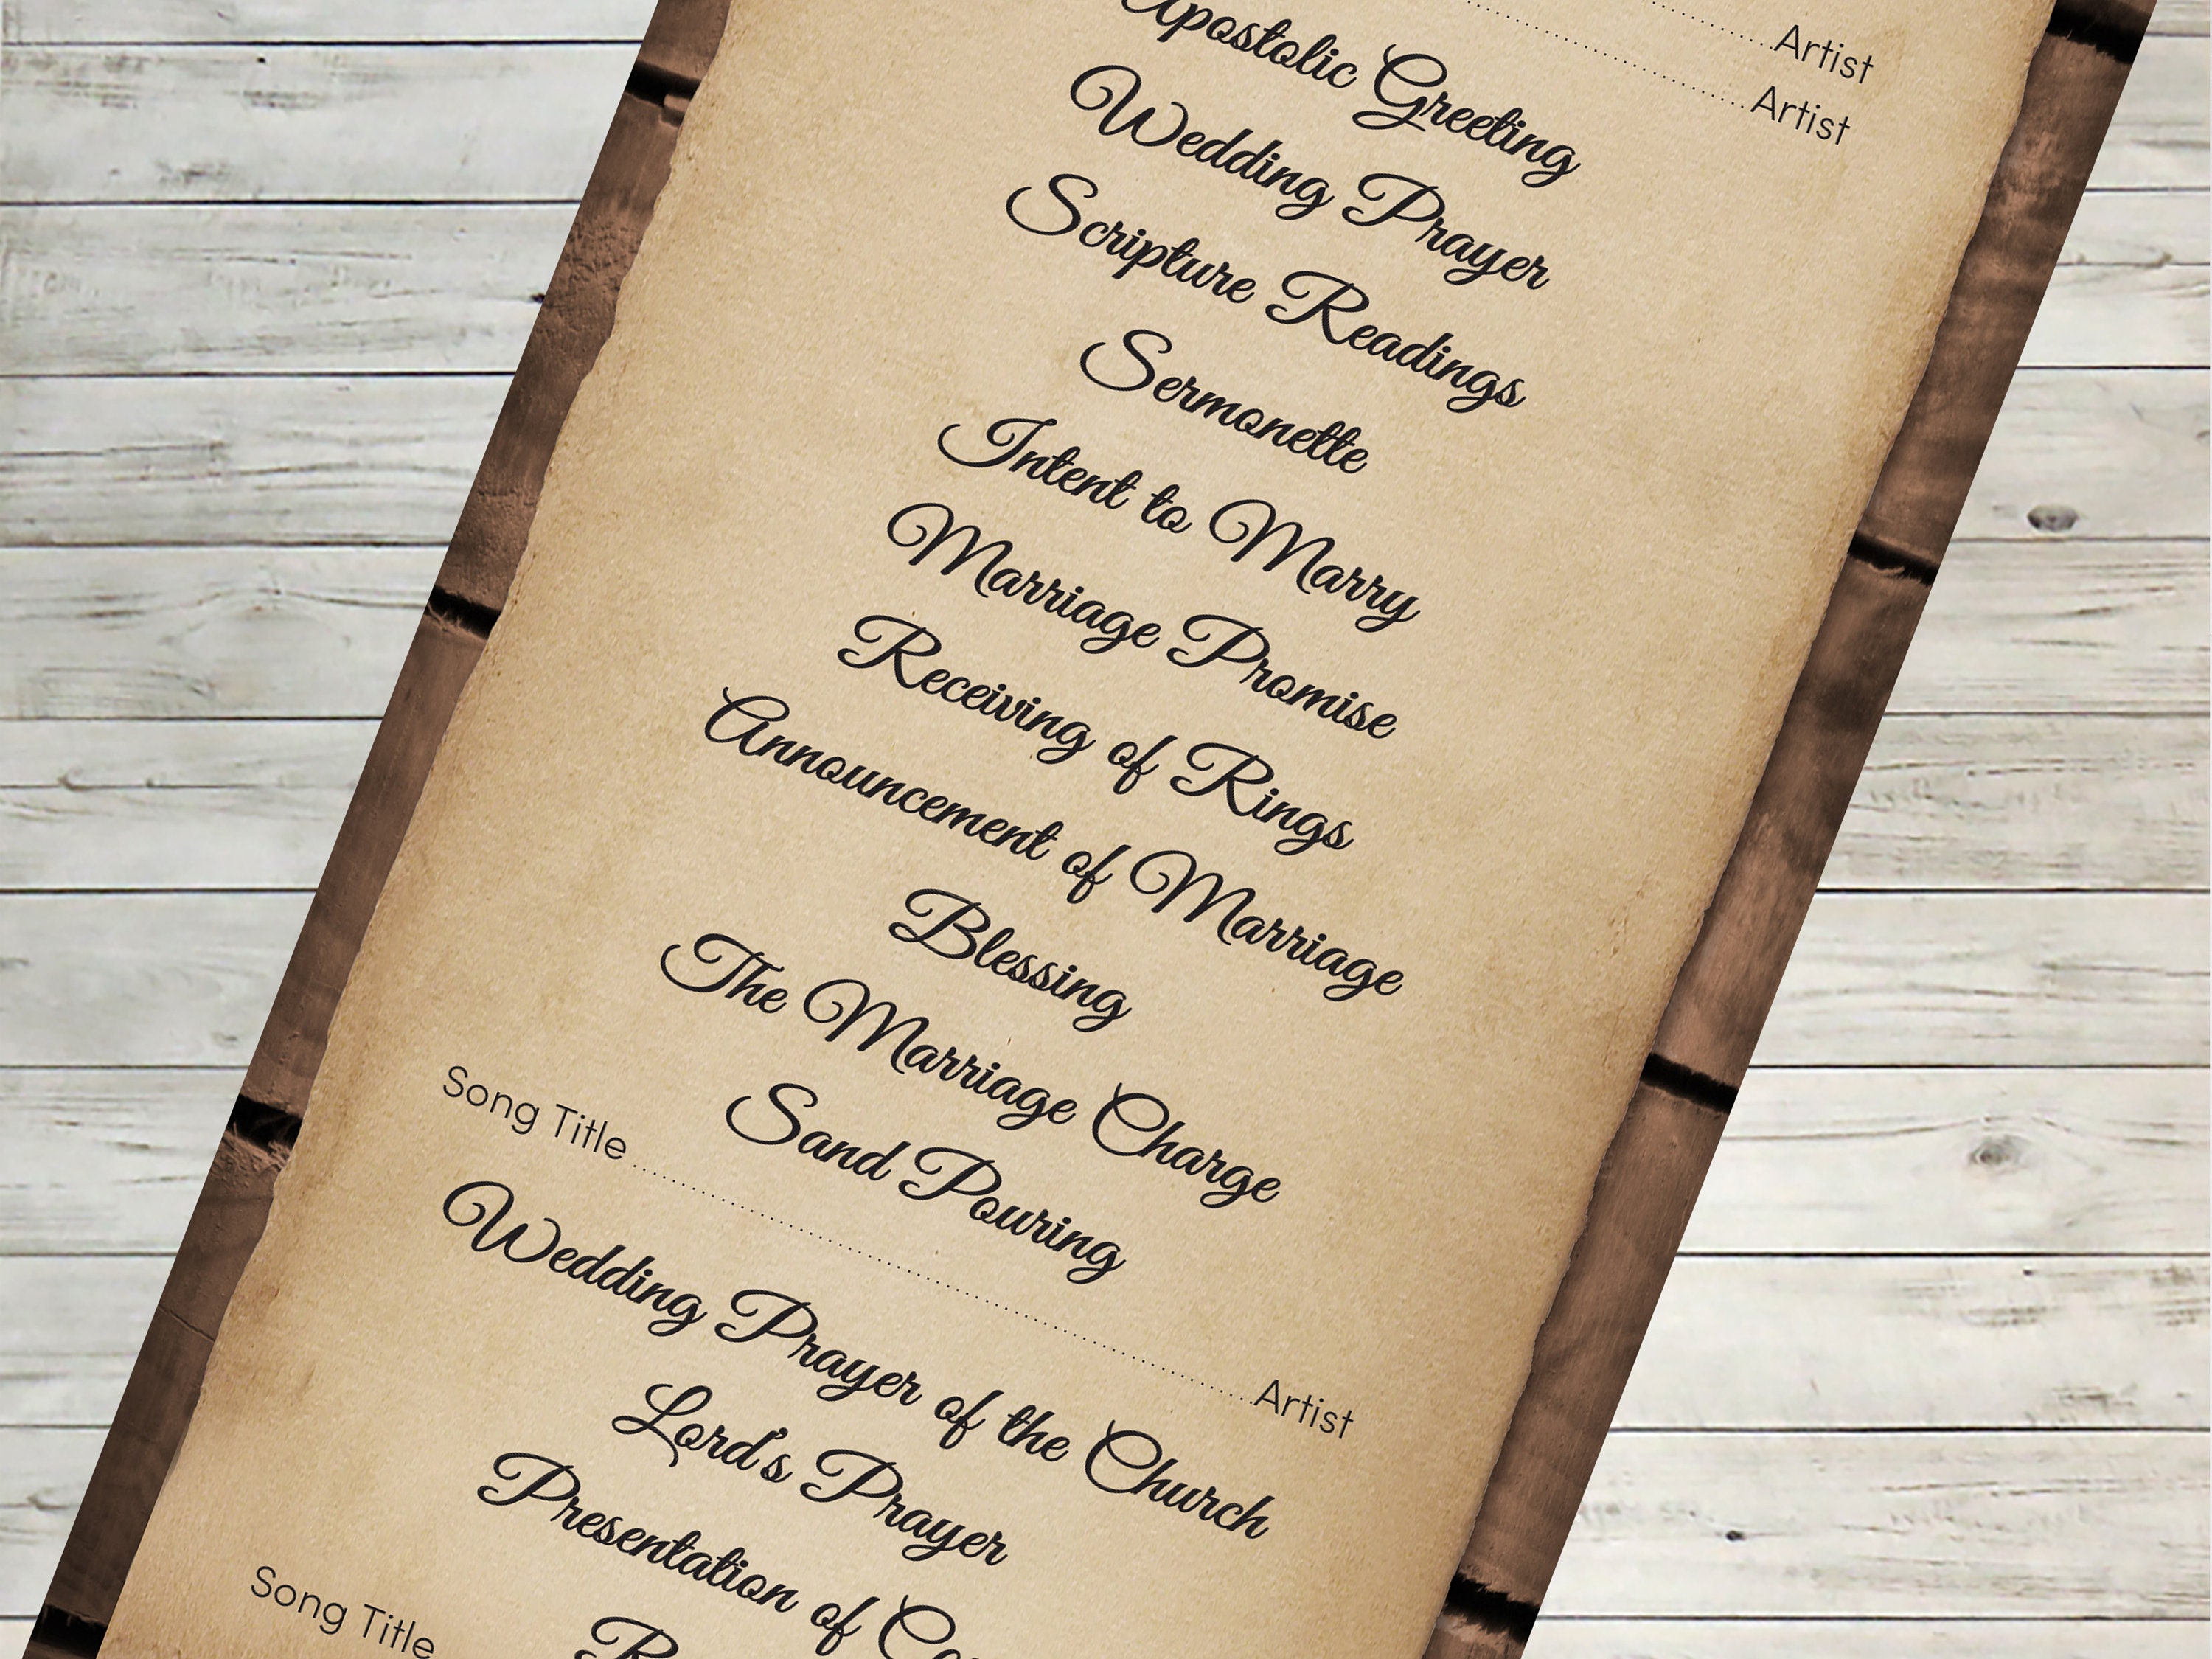 Artist
Artist
Apostolic Greeting
Wedding Prayer
Scripture Readings
Sermonette
Intent to Marry
Marriage Promise
Receiving of Rings
Announcement of Marriage
Blessing
The Marriage Charge
Sand Pouring
Song Title........................Artist
Wedding Prayer of the Church
Lord's Prayer
Presentation of
Song Title